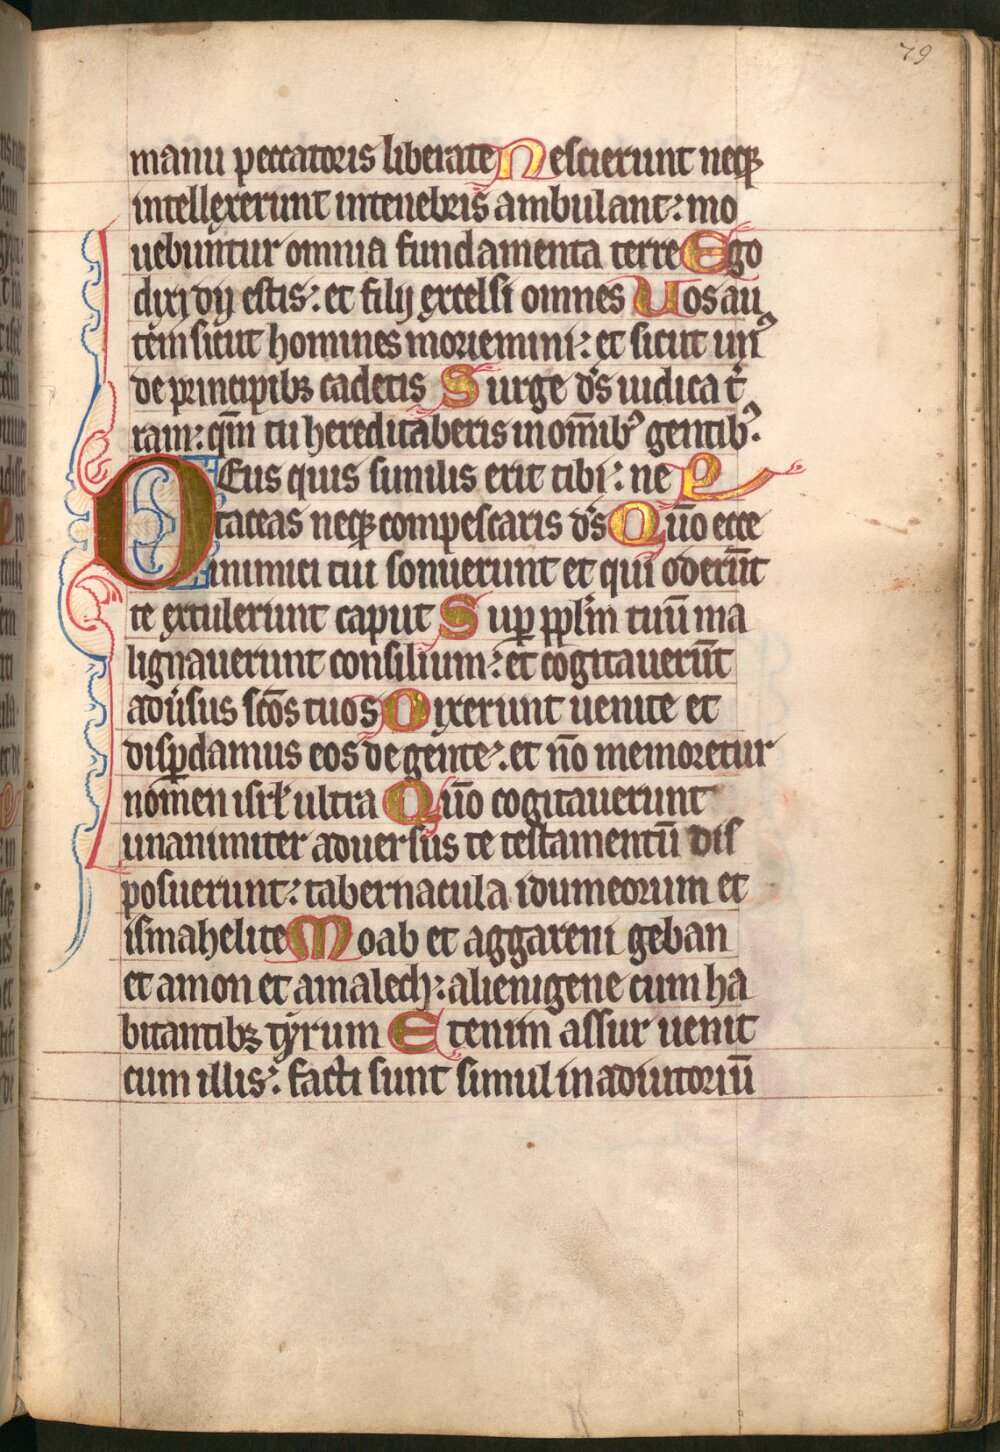 79
manu peccatoris liberate Nescierunt neqꝫ
intellexerunt in tenebris ambulant: mo
uebuntur omnia fundamenta terre Ego
dixi dij estis: et filij excelsi omnes Uos au
tem sicut homines moriemini: et sicut unꝰ
de principibꝫ cadetis Surge ds̄ iudica t̄
ram: qm̄ tu hereditaberis in om̄ibꝰ gentibꝰ.
DEus quis similis erit tibi: ne
taceas neqꝫ compescaris ds̄ Qūo ecce
inimici tui sonuerunt et qui oderūt
te extulerunt caput Suꝑ pplm̄ tuū ma
lignauerunt consilium: et cogitauerūt
adūsus scōs tuos Dixerunt uenite et
disꝑdamus eos de gente: et nō memoretur
nomen isrl̄ ultra Qūo cogitauerunt
unanimiter aduersus te testamentū dis
posuerunt: tabernacula idumeorum et
ismahelite Moab et aggareni geban
et amon et amalech: alienigene cum ha
bitantibꝫ tyrum Etenim assur uenit
cum illis: facti sunt simul in adiutoriū